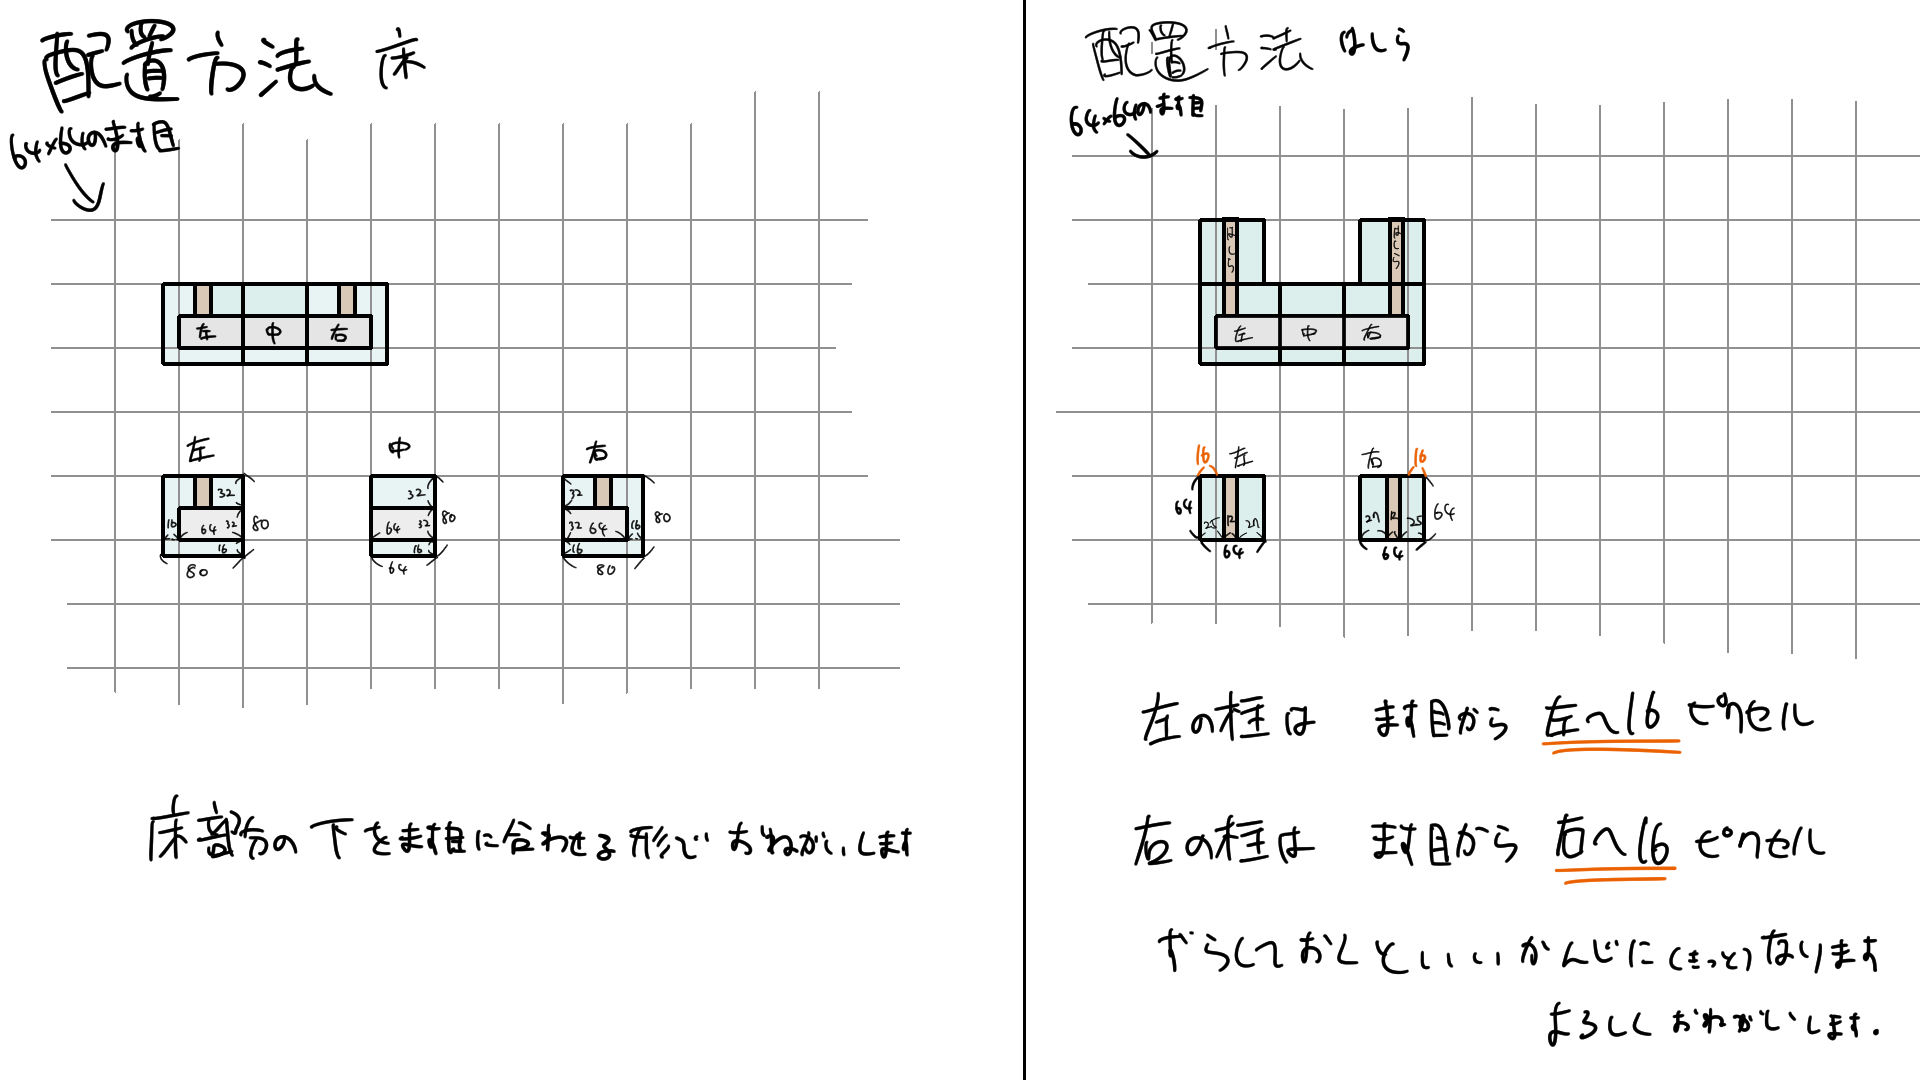 配置方法 床
64×64のます目
左 中 右
左 中 右
32 32 32
16 64 32 80 64 32 80 32 64 16 80
16 16 16
80 64 80
床部分の下をます目に合わせる形でおねがいします
配置方法 はしら
64×64のます目
はしら はしら
左 中 右
16 左 右 16
64 64
25 12 27 27 12 25
64 64
左の柱は ます目から 左へ16 ピクセル
右の柱は ます目から 右へ16 ピクセル
ずらしておくといいかんじに(きっと)なります
よろしくおねがいします.